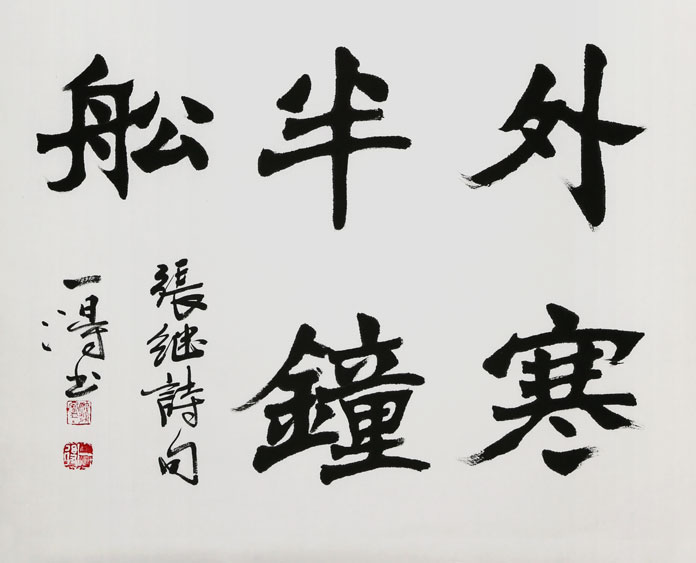 外寒
半鐘
舩
張继詩句
一得书